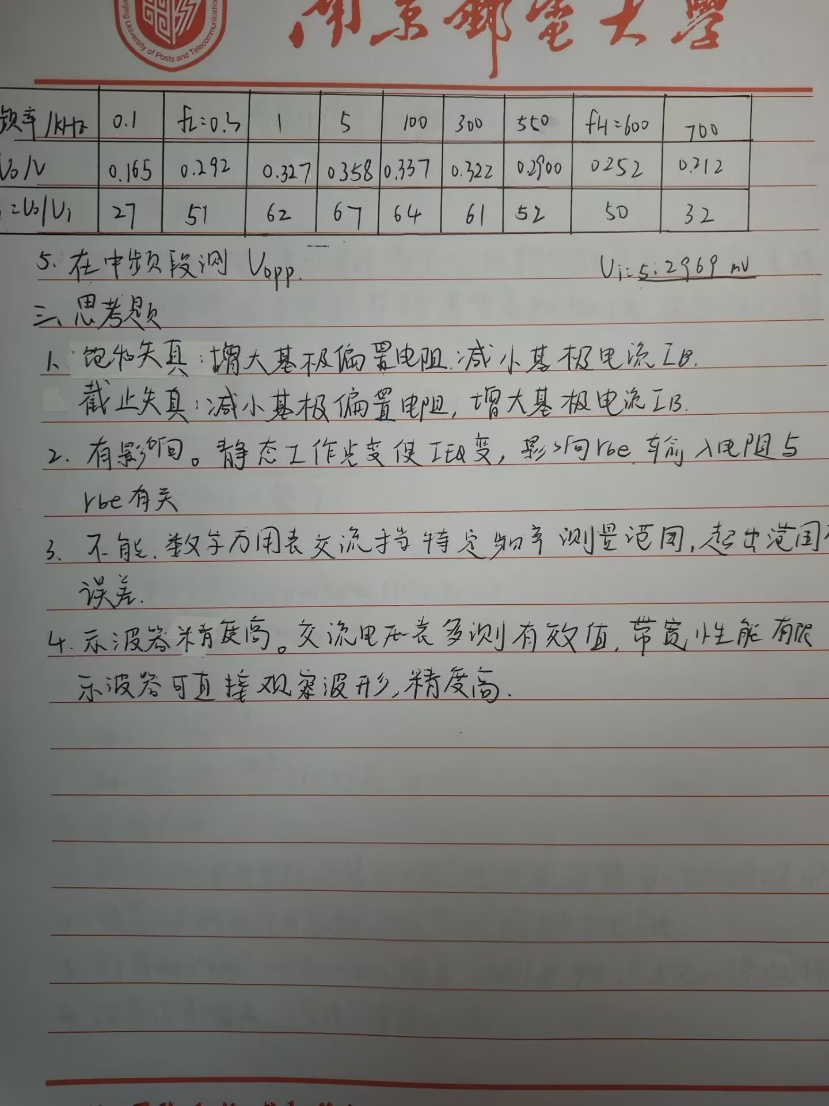 Nanjing University of Posts and Telecommunications
南京邮电大学
频率/kHz 0.1 fL=0.3 1 5 100 300 550 fH=600 700
Uo/V 0.165 0.292 0.327 0.358 0.337 0.322 0.2900 0.252 0.212
=Uo/Ui 27 51 62 67 64 61 52 50 32
5. 在中频段测 Uopp. Ui=5.2969 mV
三、思考题
1、饱和失真:增大基极偏置电阻.减小基极电流IB.
截止失真:减小基极偏置电阻,增大基极电流IB.
2. 有影响。静态工作点变使IEQ变,影响rbe.输入电阻与
rbe有关
3. 不能.数字万用表交流挡特定频率测量范围,超出范围
误差.
4. 示波器精度高。交流电压表多测有效值,带宽性能有限
示波器可直接观察波形,精度高.